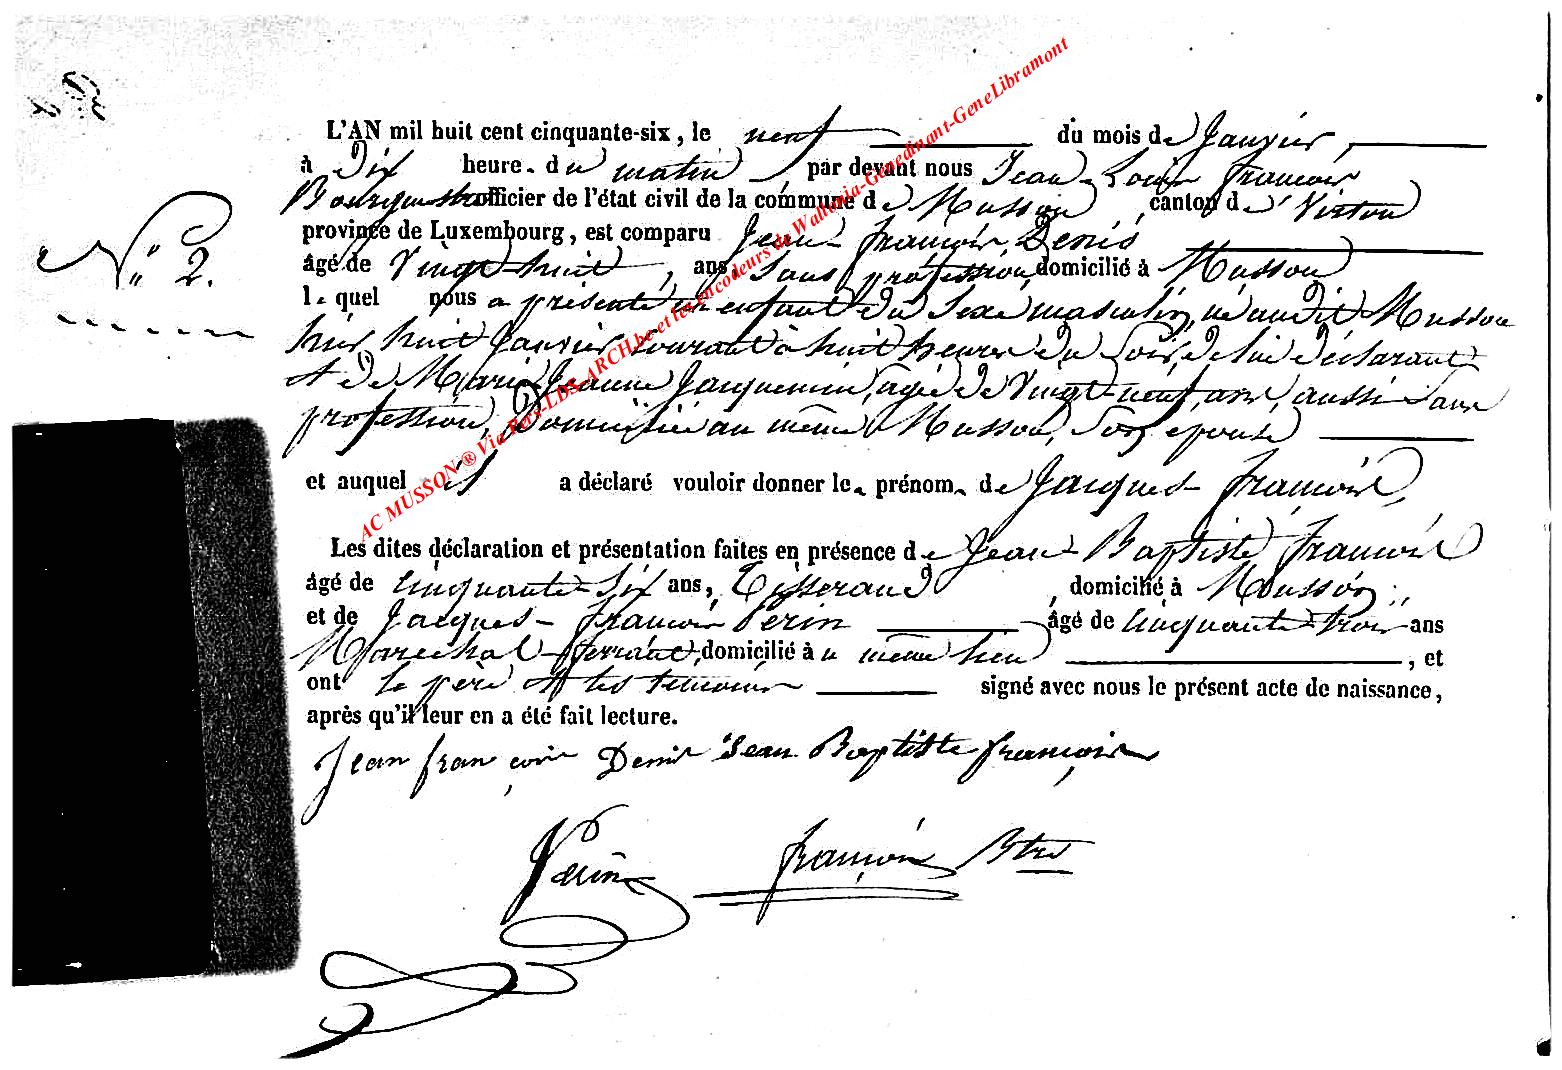 L'AN mil huit cent cinquante-six, le neuf du mois de Janvier,
à Dix heure. du matin par devant nous Jean-Louis François
Bourgmestre officier de l'état civil de la commune de Musson, canton de Virton
province de Luxembourg, est comparu Jean-François Denis,
âgé de Vingt-huit, ans, sans profession, domicilié à Musson
le quel nous a présenté un enfant du sexe masculin, né audit Musson
hier huit Janvier courant à huit heures du soir de lui déclarant
et de Marie Jeanne Jacquemin, agée de Vingt-neuf, ans, aussi sans
profession, Domiciliée au même Musson, son épouse
et auquel il a déclaré vouloir donner le. prénom. de Jacques-François,
Les dites déclaration et présentation faites en présence de Jean-Baptiste François
âgé de Cinquante-six ans, Tisserand, domicilié à Musson,
et de Jacques-François Perin âgé de Cinquante-trois ans
Maréchal-ferrant, domicilié à u même lieu, et
ont le père et les témoins signé avec nous le présent acte de naissance,
après qu'il leur en a été fait lecture.
N° 2.
Jean françois Denis Jean Baptiste françois
Perin françois Btre
AC MUSSON ® Via Fers-LDS-ARCH.be et les encodeurs de Wallonia-Genedinant-GeneLibramont